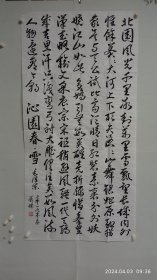 北国风光千里冰封万里雪飘望长城内外
惟余莽莽大河上下顿失滔滔山舞银蛇原驰
蜡象欲与天公试比高须晴日看红装素裹分外妖
娆江山如此多娇引无数英雄竞折腰惜秦皇
汉武略输文采唐宗宋祖稍逊风骚一代天
骄成吉思汗只识弯弓射大雕俱往矣数风流
人物还看今朝 沁园春雪 毛泽东
2024.04.03 09:36